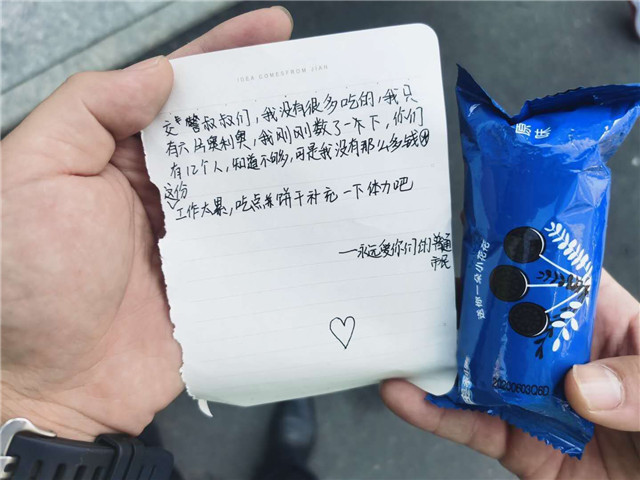 IDEA COMESFROM JIAN
交警叔叔们，我没有很多吃的，我只
有六片奥利奥，我刚刚数了一下，你们
有12个人，知道不够，可是我没有那么多钱
这份
工作太累，吃点羊饼干补充一下体力吧
——永远爱你们的普通
市民
送你一朵小花花